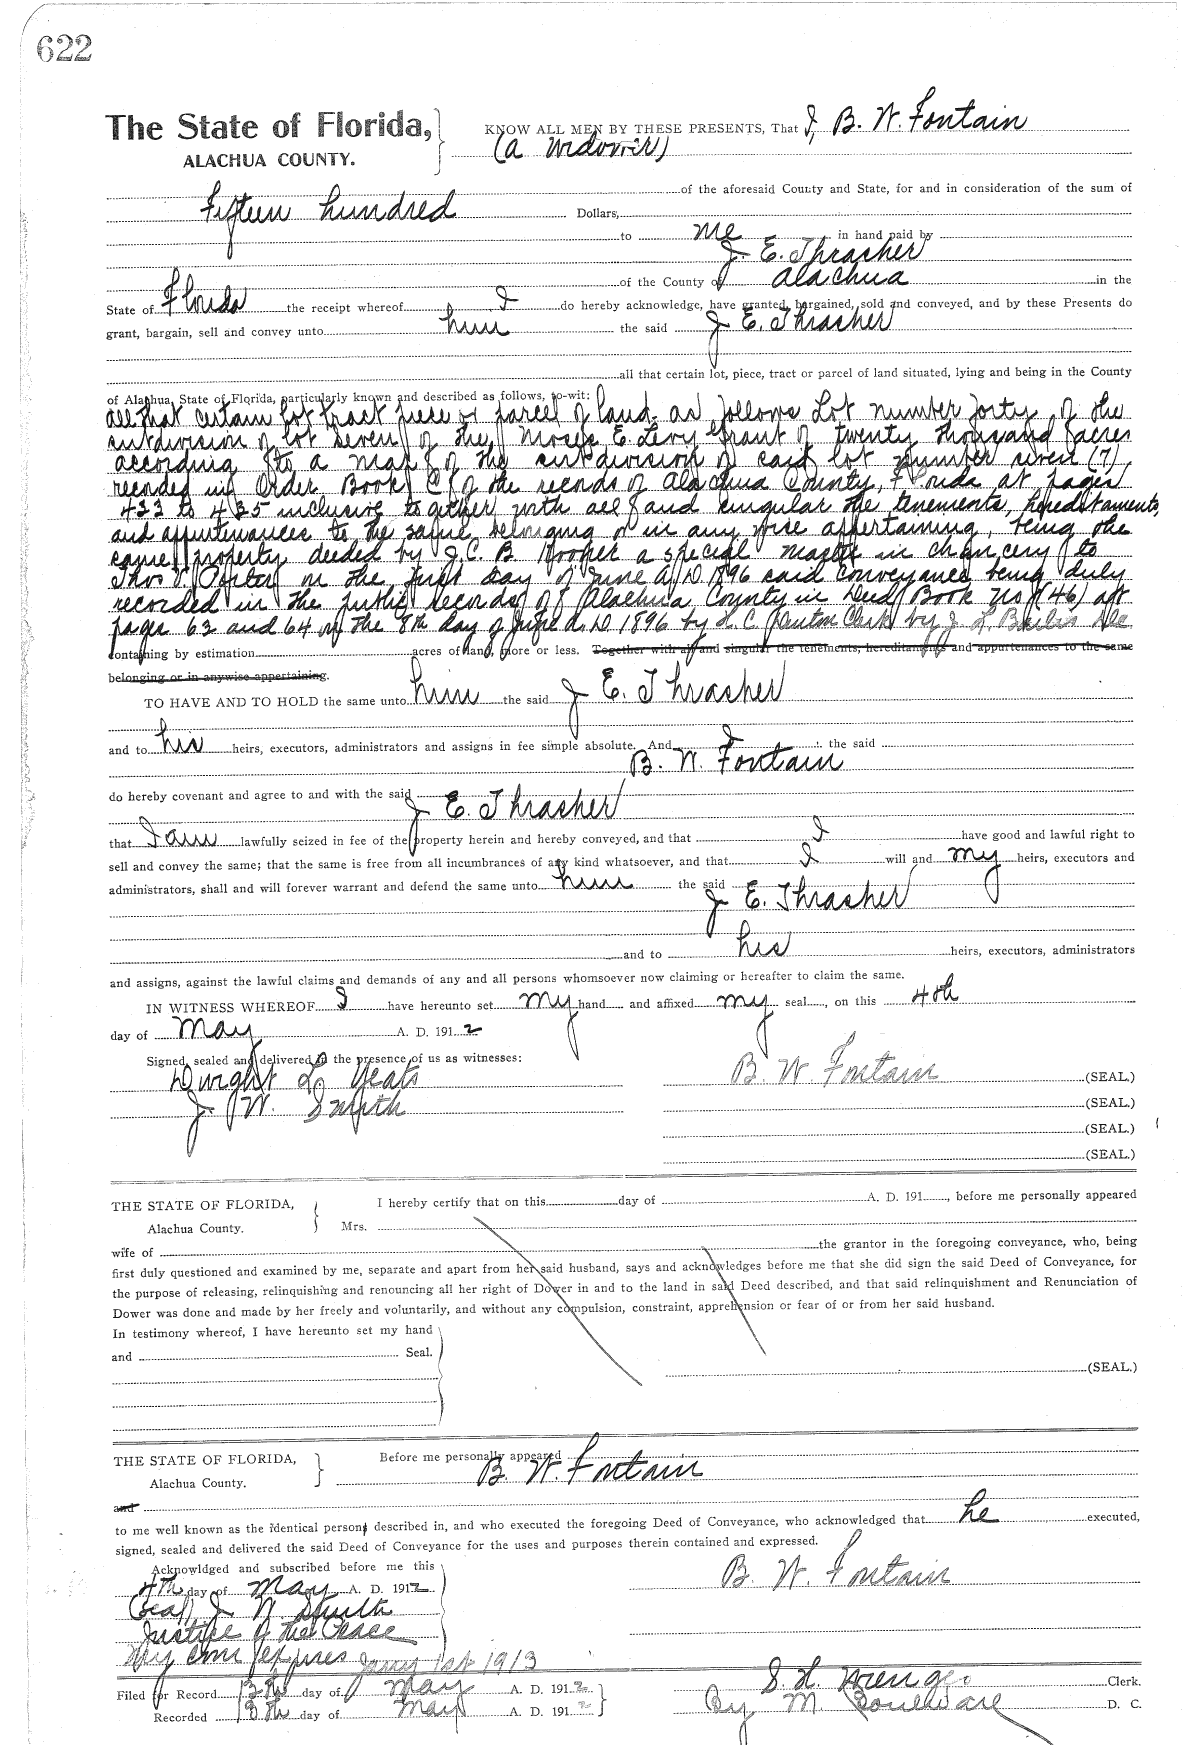 622
The State of Florida, KNOW ALL MEN BY THESE PRESENTS, That I, B. W. Fontain
ALACHUA COUNTY. (a widower)
of the aforesaid County and State, for and in consideration of the sum of
Fifteen hundred Dollars,
to me in hand paid by
J. E. Thrasher
of the County of Alachua in the
State of Florida the receipt whereof I do hereby acknowledge, have granted, bargained, sold and conveyed, and by these Presents do
grant, bargain, sell and convey unto him the said J E. Thrasher
all that certain lot, piece, tract or parcel of land situated, lying and being in the County
of Alachua, State of Florida, particularly known and described as follows, to-wit:
all that certain lot tract piece or parcel of land as follows Lot number forty of the
subdivision of lot seven of the Moses E. Levy grant of twenty thousand acres
according to a map of the subdivision of said lot number seven (7)
recorded in Order Book C of the records of Alachua County, Florida at pages
433 to 435 inclusive together with all and singular the tenements, hereditaments,
and appurtenances to the same belonging or in any wise appertaining, being the
same property deeded by J. C. B. Hooper a special master in chancery to
Thos V. Porter on the first day of June A. D. 1896 said conveyance being duly
recorded in the public records of Alachua County in Deed Book No (46) att
pages 63 and 64 on the 8th day of June A. D. 1896 by Clerk by J. L.
containing by estimation acres of land, more or less. Together with all and singular the tenements, hereditaments and appurtenances to the same
belonging or in anywise appertaining.
TO HAVE AND TO HOLD the same unto him the said J E. Thrasher
and to his heirs, executors, administrators and assigns in fee simple absolute. And I the said
B. W. Fontain
do hereby covenant and agree to and with the said J E. Thrasher
that I am lawfully seized in fee of the property herein and hereby conveyed, and that I have good and lawful right to
sell and convey the same; that the same is free from all incumbrances of any kind whatsoever, and that I will and my heirs, executors and
administrators, shall and will forever warrant and defend the same unto him the said
J E. Thrasher
and to his heirs, executors, administrators
and assigns, against the lawful claims and demands of any and all persons whomsoever now claiming or hereafter to claim the same.
IN WITNESS WHEREOF I have hereunto set my hand and affixed my seal, on this 4th
day of May A. D. 1912
Signed, sealed and delivered in the presence of us as witnesses:
Dwight L Yeats B. W. Fontain (SEAL.)
J W. Smith (SEAL.)
(SEAL.)
(SEAL.)
THE STATE OF FLORIDA, I hereby certify that on this day of A. D. 191 , before me personally appeared
Alachua County. Mrs.
wife of the grantor in the foregoing conveyance, who, being
first duly questioned and examined by me, separate and apart from her said husband, says and acknowledges before me that she did sign the said Deed of Conveyance, for
the purpose of releasing, relinquishing and renouncing all her right of Dower in and to the land in said Deed described, and that said relinquishment and Renunciation of
Dower was done and made by her freely and voluntarily, and without any compulsion, constraint, apprehension or fear of or from her said husband.
In testimony whereof, I have hereunto set my hand
and Seal.
(SEAL.)
THE STATE OF FLORIDA, Before me personally appeared
Alachua County. B. W. Fontain
and
to me well known as the identical person described in, and who executed the foregoing Deed of Conveyance, who acknowledged that he executed,
signed, sealed and delivered the said Deed of Conveyance for the uses and purposes therein contained and expressed.
Acknowldged and subscribed before me this B. W. Fontain
4th day of May A. D. 1912
(Seal) J W. Smith
Justice of the Peace
My com expires Jany 1st 1913
Filed for Record 13th day of May A. D. 1912 S. H. Wienges Clerk.
Recorded 13th day of May A. D. 1912 By M Bouleware D. C.